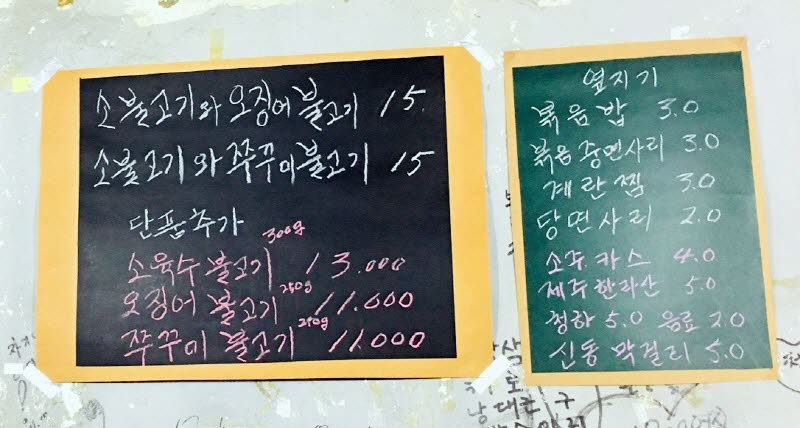 소불고기와 오징어 불고기 15.
소불고기와 쭈꾸미불고기 15
단품추가
300g
소육수불고기 13.000
250g
오징어 불고기 11.000
250g
쭈꾸미 불고기 11.000
옆지기
볶음밥 3.0
볶음중면사리 3.0
계란찜 3.0
당면사리 2.0
소주카스 4.0
제주한라산 5.0
청하 5.0 음료 2.0
신동막걸리 5.0